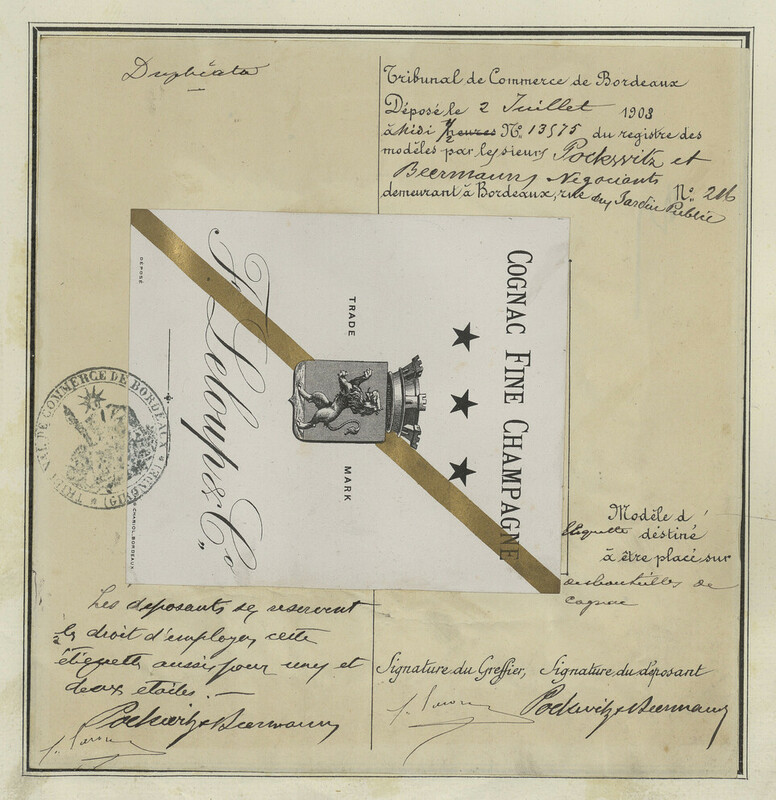 Duplicata
Tribunal de Commerce de Bordeaux
Déposé le 2 Juillet 1903
à Midi ½ heures N° 13575 du registre des
modèles par les sieurs Pockwitz et
Beermann, Négociants
demeurant à Bordeaux, rue du Jardin Public N° 216
COGNAC FINE CHAMPAGNE
TRADE MARK
F. Leloup & Co.
DÉPOSÉ
CHARIOL, BORDEAUX
TRIBUNAL DE COMMERCE DE BORDEAUX
(GIRONDE)
Modèle d'
étiquette destiné
à être placé sur
des bouteilles de
cognac
Les déposants se réservent
le droit d'employer cette
étiquette aussi pour une et
deux étoiles.—
Pockwitz & Beermann
Signature du Greffier, Signature du déposant
Pockwitz & Beermann